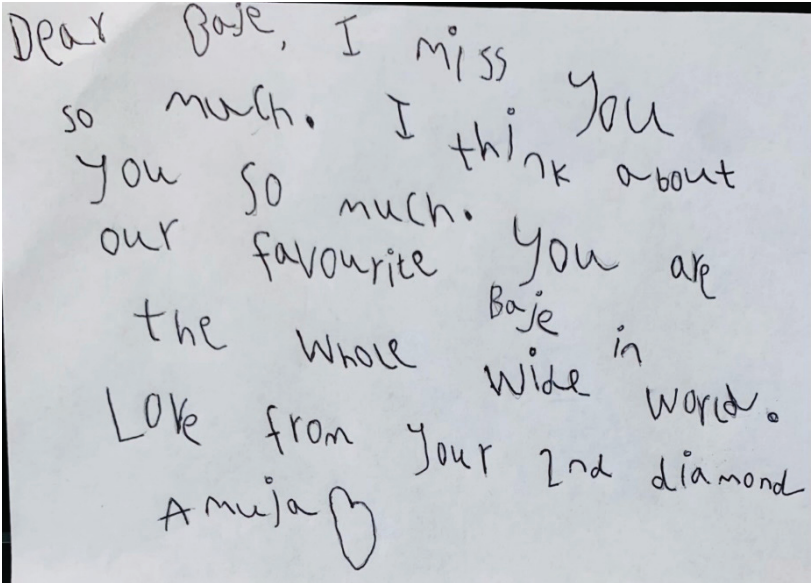 Dear Baje, I miss you
so much. I think about
you so much. You are
our favourite Baje in
the whole wide world.
Love from your 2nd diamond
Amuja